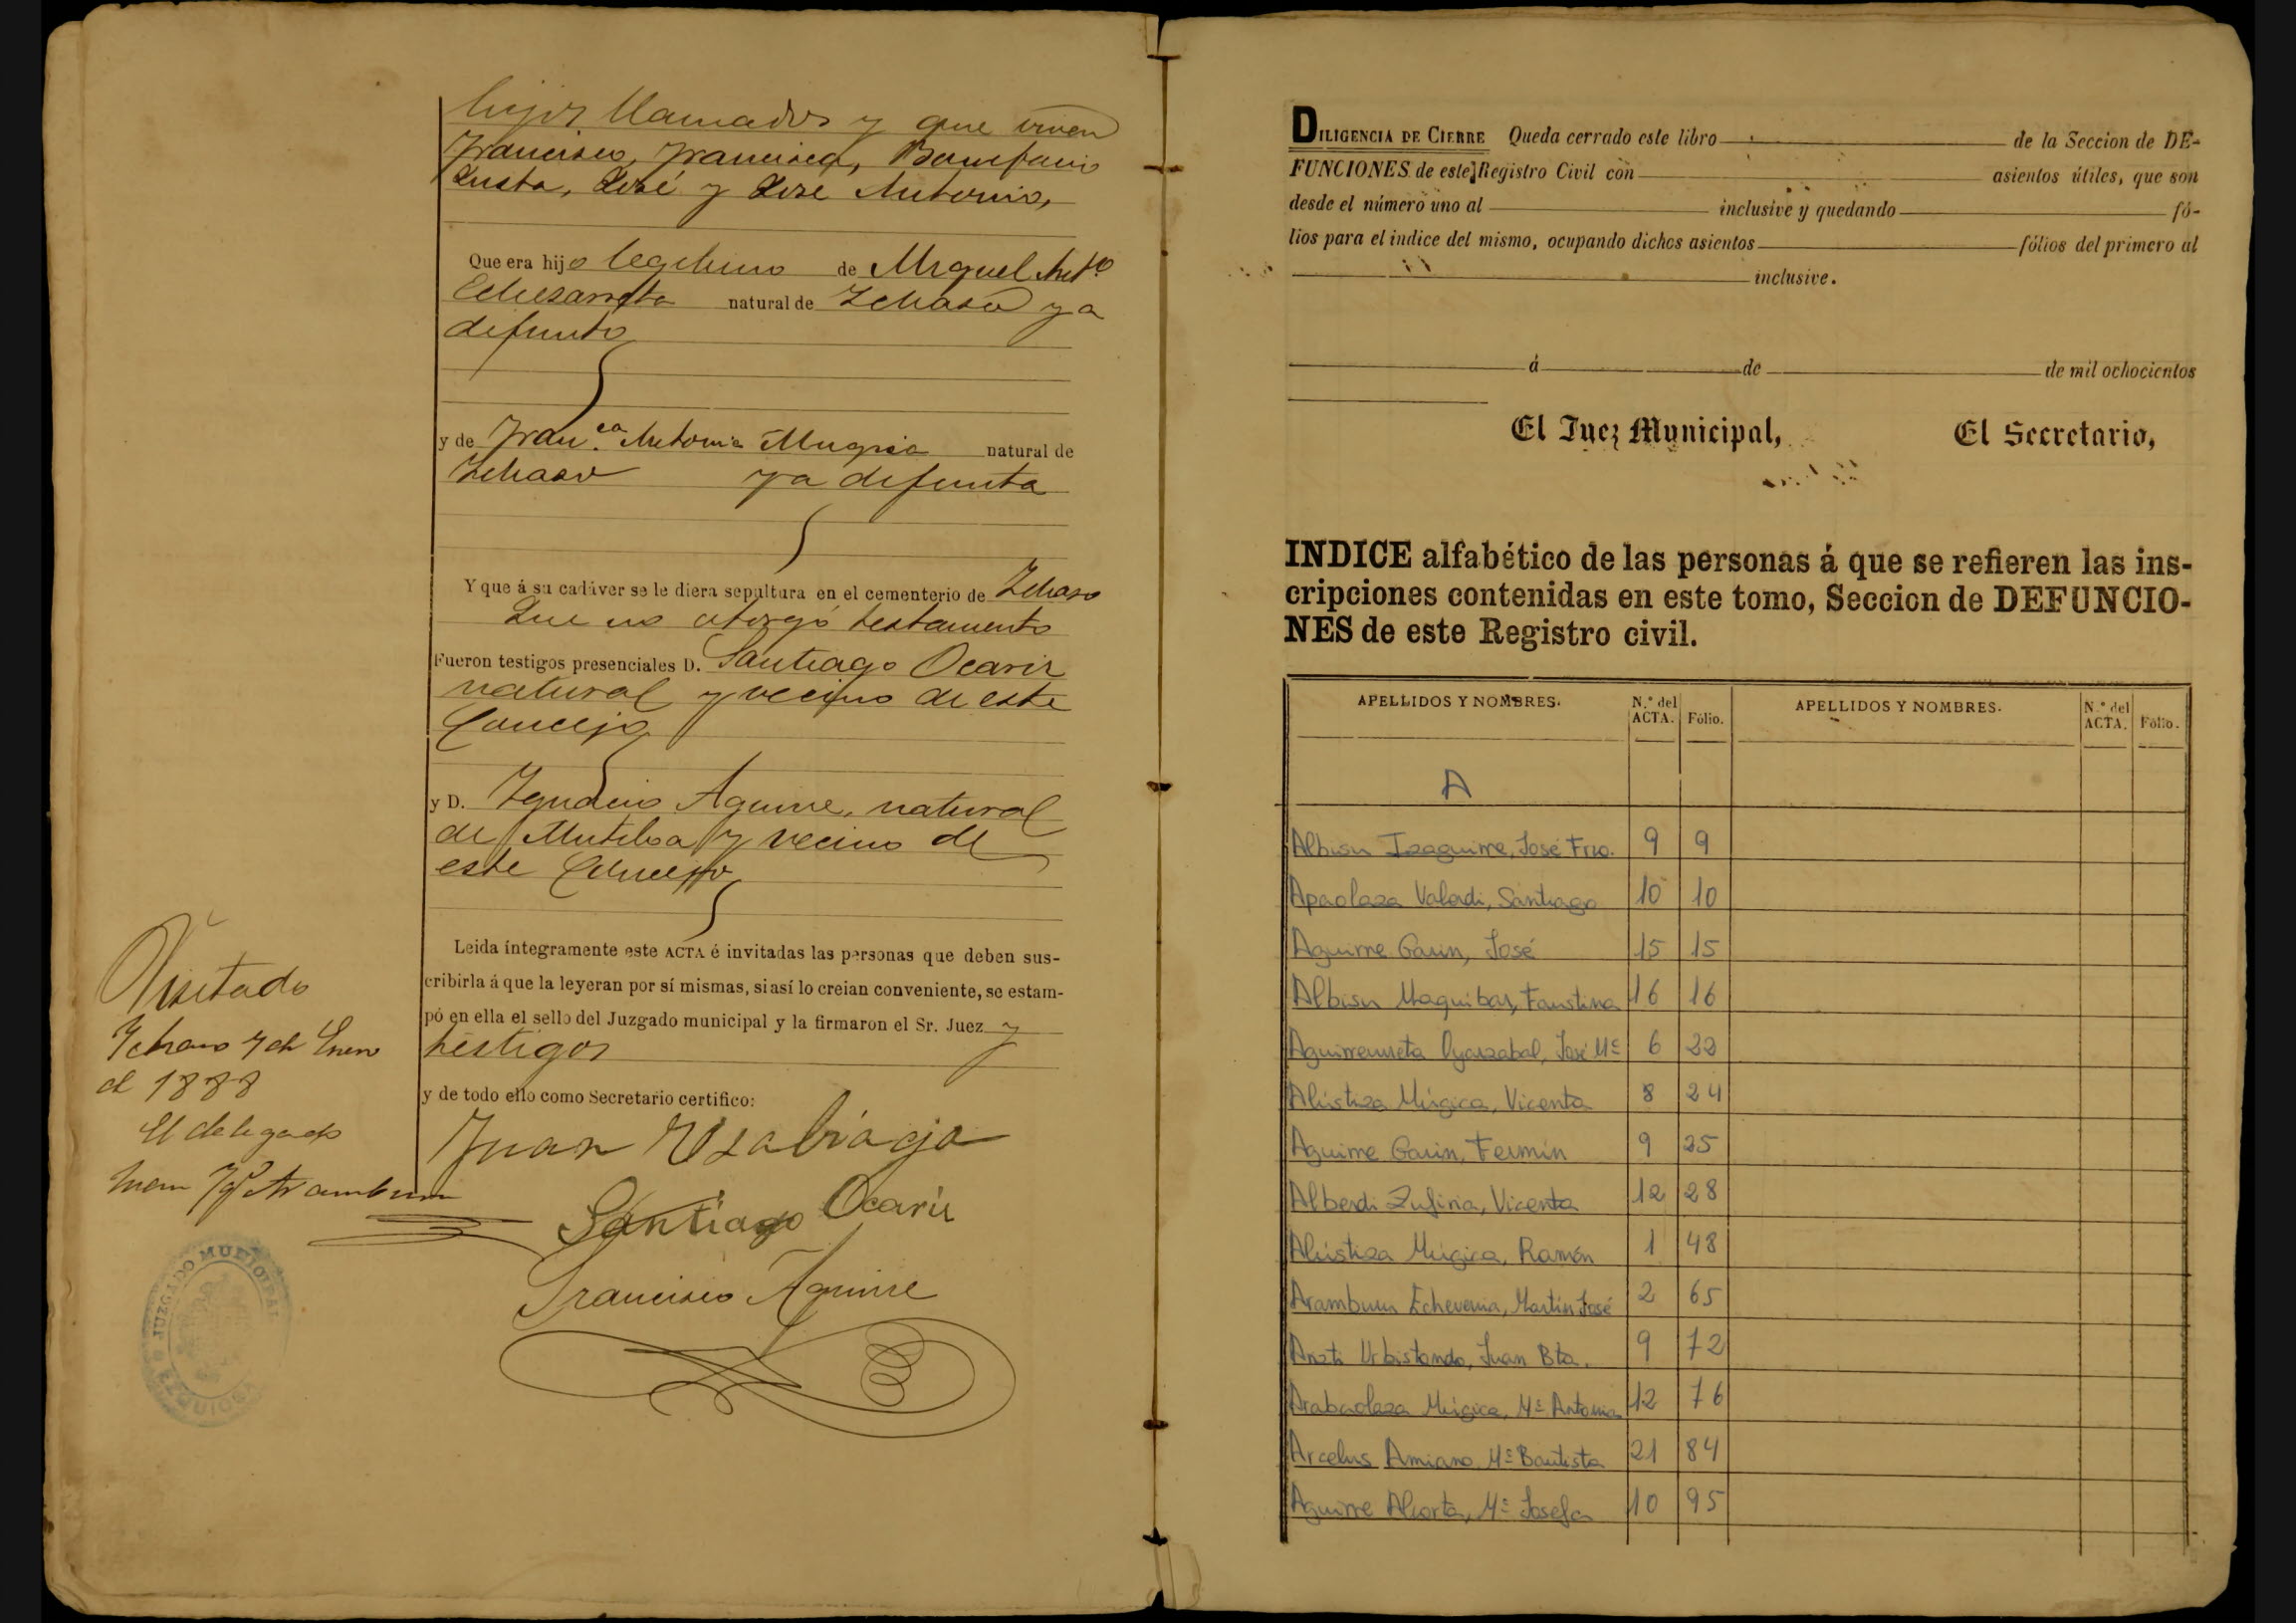 hijos llamados y que viven
Francisco, Francisca, Bonifacio
Justa, José y José Antonio,
Que era hijo legitimo de Miguel Antº
Echezarreta natural de Ichaso ya
difunto
y de Franca Antonia Mugica natural de
Ichaso ya difunta
Y que á su cadáver se le diera sepultura en el cementerio de Ichaso
Que no otorgó testamento
Fueron testigos presenciales D. Santiago Ocariz
natural y vecino de este
Concejo
y D. Ignacio Aguirre, natural
de Mutiloa y vecino de
este Concejo
Leida íntegramente este ACTA é invitadas las personas que deben sus-
cribirla á que la leyeran por sí mismas, si así lo creian conveniente, se estam-
pó en ella el sello del Juzgado municipal y la firmaron el Sr. Juez y
testigos
y de todo ello como Secretario certifico:
Juan Usabiaga
Santiago Ocariz
Francisco Aguirre
Visitado
Ichaso 7 de Enero
de 1888
El delegado
Juan Aramburu
JUZGADO MUNICIPAL
EZQUIOGA
DILIGENCIA DE CIERRE Queda cerrado este libro de la Seccion de DE-
FUNCIONES de este Registro Civil con asientos útiles, que son
desde el número uno al inclusive y quedando fó-
lios para el indice del mismo, ocupando dichos asientos fólios del primero al
inclusive.
á de de mil ochocientos
El Juez Municipal, El Secretario,
INDICE alfabético de las personas á que se refieren las ins-
cripciones contenidas en este tomo, Seccion de DEFUNCIO-
NES de este Registro civil.
APELLIDOS Y NOMBRES. N.º del ACTA. Fólio. APELLIDOS Y NOMBRES. N.º del ACTA. Fólio.
A
Albisu Izaguirre, José Fco. 9 9
Apaolaza Valerdi, Santiago 10 10
Aguirre Garin, José 15 15
Albisu Maquibar, Faustina 16 16
Aguirreurreta Oyarzabal, José Mª 6 22
Alústiza Múgica, Vicenta 8 24
Aguirre Garin, Fermín 9 25
Alberdi Zufiria, Vicenta 12 28
Alústiza Múgica, Ramón 1 48
Aramburu Echeverria, Martín José 2 65
Arzti Urbistondo, Juan Bta. 9 72
Arabaolaza Múgica, Mª Antonia 12 76
Arcelus Amiano, Mª Bautista 21 84
Aguirre Alcorta, Mª Josefa 10 95